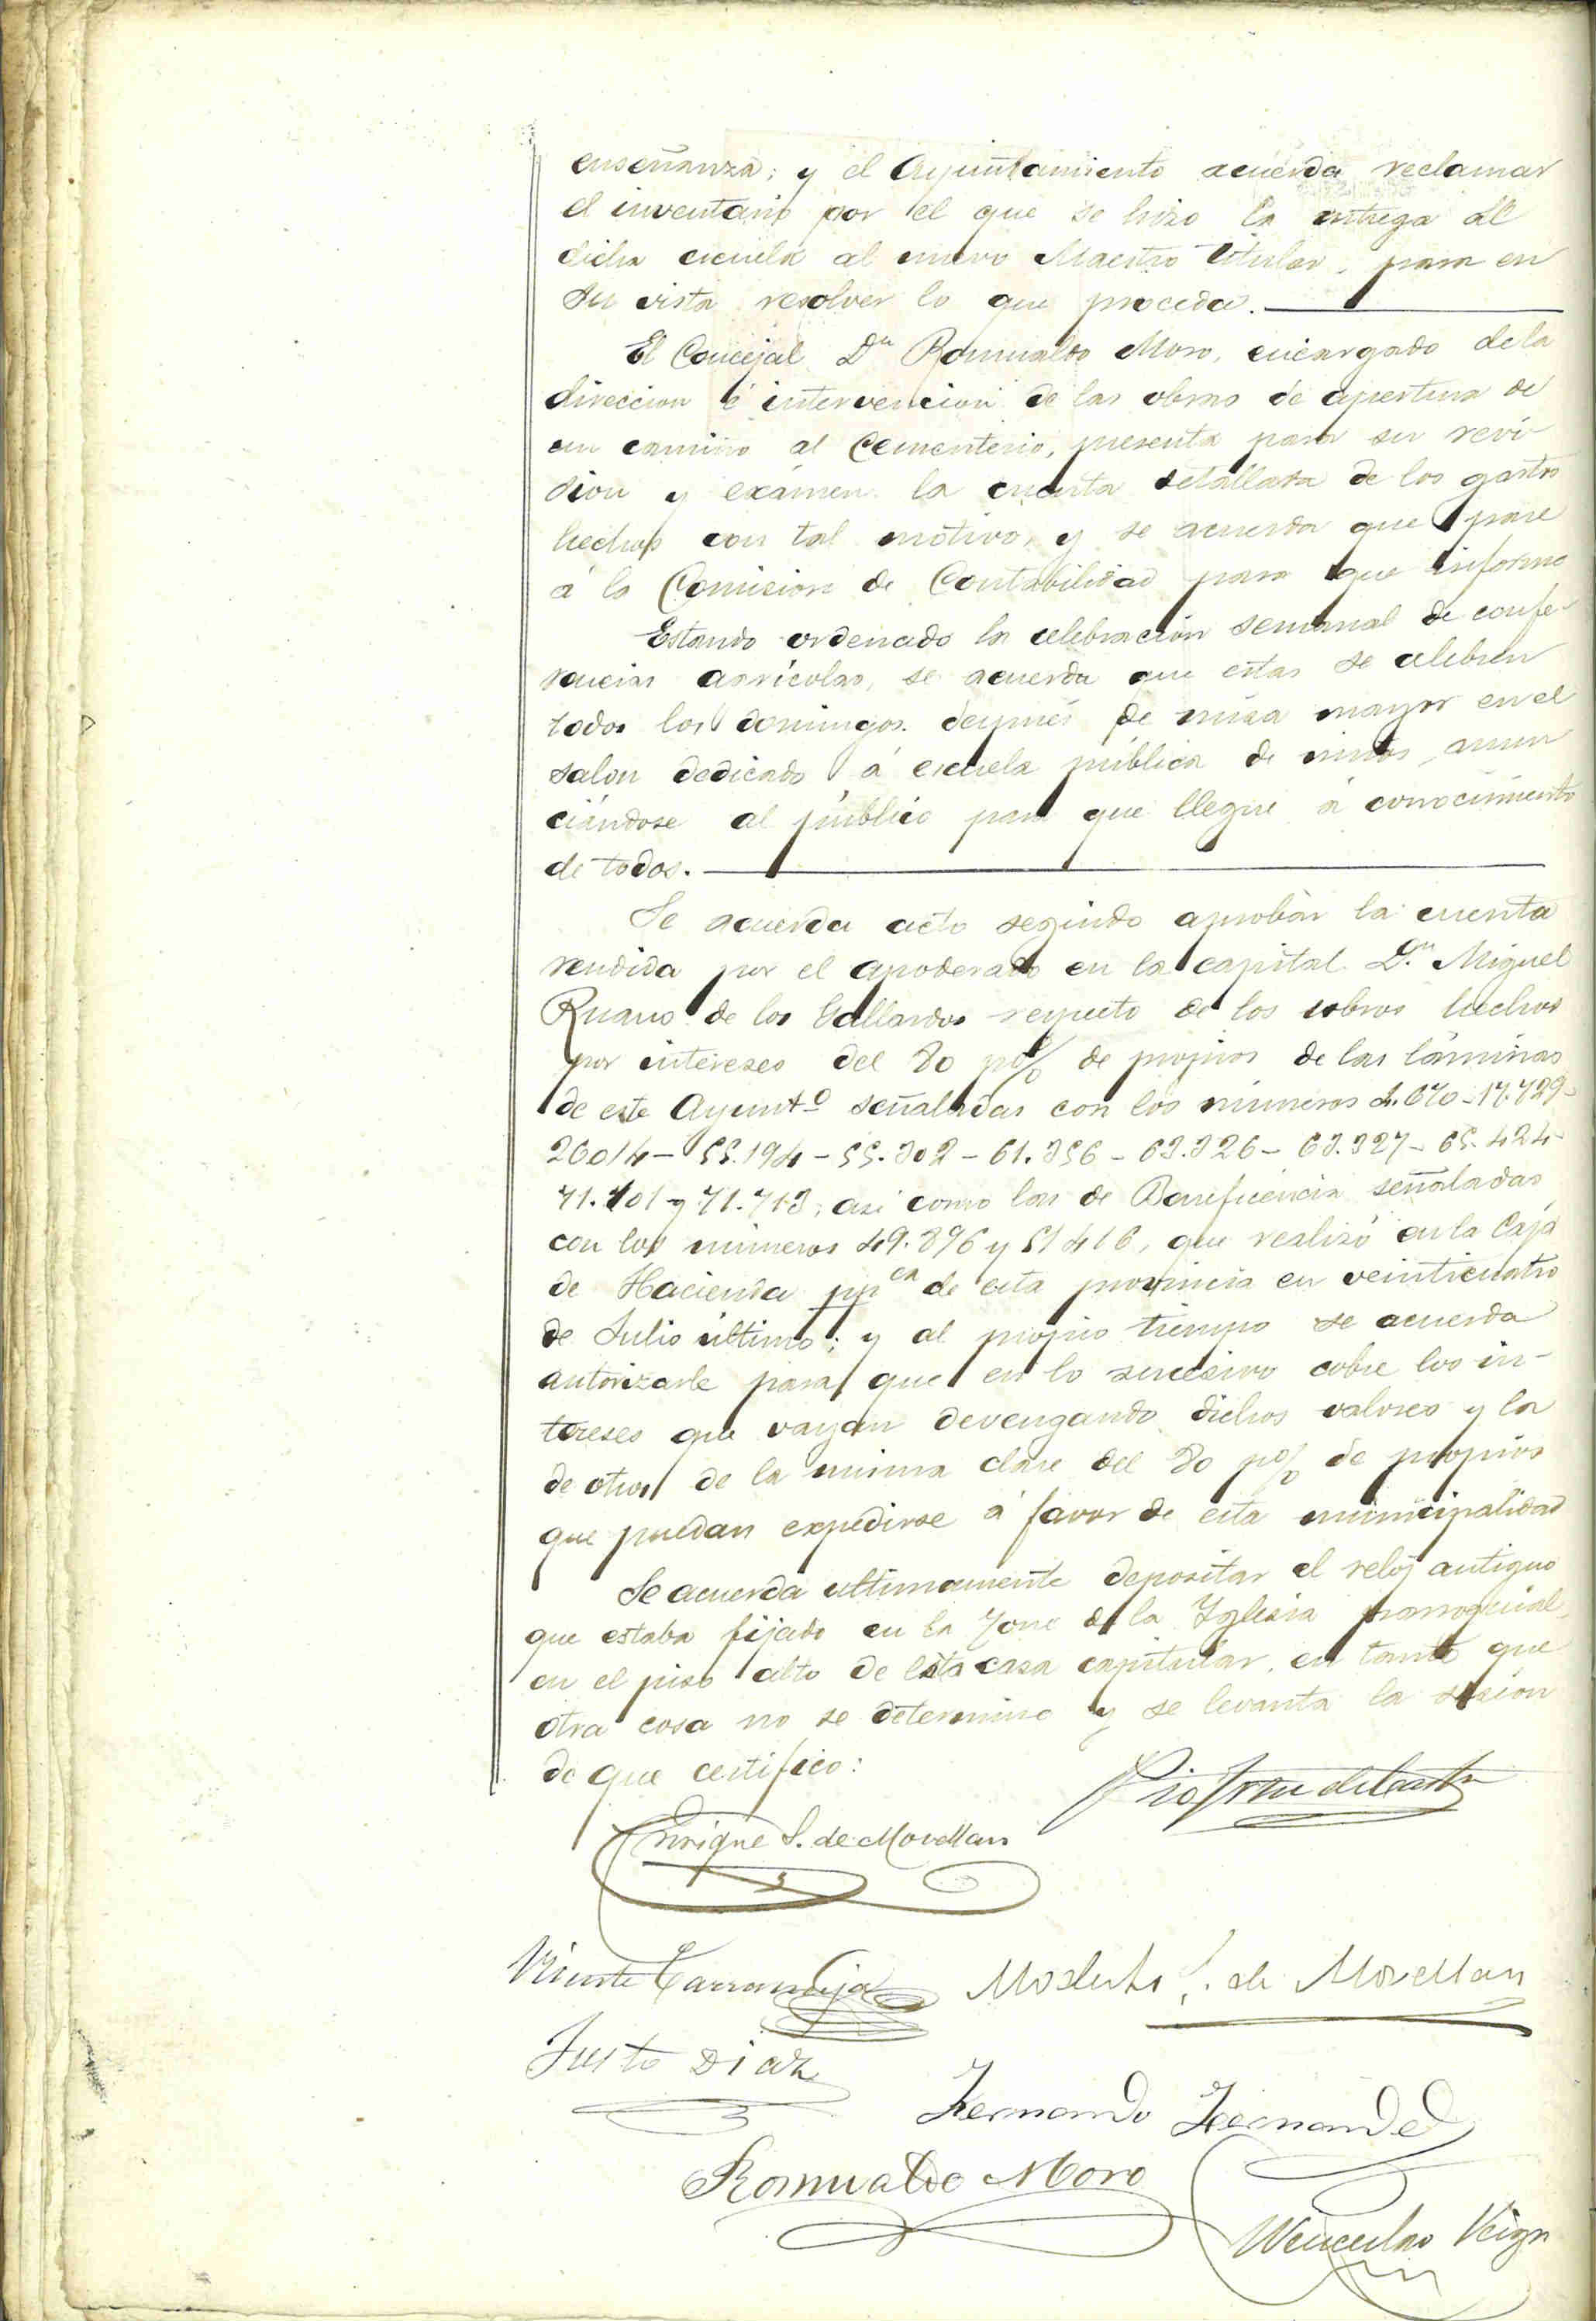 enseñanza; y el Ayuntamiento acuerda reclamar
el inventario por el que se hizo la entrega de
dicha escuela al nuevo Maestro titular, para en
su vista resolver lo que proceda.
El Concejal Dn Romualdo Moro, encargado de la
direccion é intervencion de las obras de apertura de
un camino al Cementerio, presenta para su revi-
sion y exámen la cuenta detallada de los gastos
hechos con tal motivo, y se acuerda que pase
á la Comision de Contabilidad para que informe
Estando ordenado la celebración semanal de confe-
rencias agrícolas, se acuerda que estas se celebren
todos los domingos despues de misa mayor en el
salon dedicado á escuela pública de niños, anun
ciándose al público para que llegue á conocimiento
de todos.
Se acuerda acto seguido aprobar la cuenta
rendida por el apoderado en la capital Dn Miguel
Ruano de los Gallardos respecto de los cobros hechos
por intereses del 80 p% de propios de las láminas
de este Ayuntº señaladas con los números 17.729-
26014- 55.194- 55.302- 61.356- 63.326- 63.327- 65.424-
71.101 y 71.713, asi como las de Beneficencia señaladas
con los números 49.896 y 51416, que realizó en la Caja
de Hacienda ppca de esta provincia en veinticuatro
de Julio último; y al propio tiempo se acuerda
autorizarle para que en lo sucesivo cobre los in-
tereses que vayan devengando dichos valores y los
de otros de la misma clase del 80 p% de propios
que puedan expedirse á favor de esta municipalidad
Se acuerda ultimamente depositar el reloj antiguo
que estaba fijado en la Torre de la Iglesia parroquial,
en el piso alto de esta casa capitular, en tanto que
otra cosa no se determine y se levanta la sesión
de que certifico:
Enrique S. de Movellan
Vicente
Modesto S. de Movellan
Justo Diaz
Fernando Fernandez
Romualdo Moro
Wenceslao Veiga